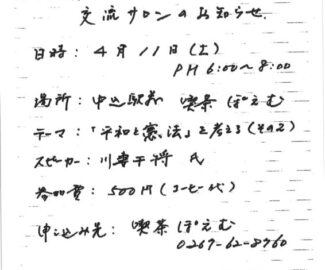 交流サロンのお知らせ.
日時: 4月11日(土)
PM 6:00〜8:00
場所: 中込駅前 喫茶 ぽえむ
テーマ:「平和と憲法」を考える(その2)
スピーカー: 川 干 将 氏
参加費: 500円(コーヒー代)
申し込み先: 喫茶 ぽえむ
0267-62-8760